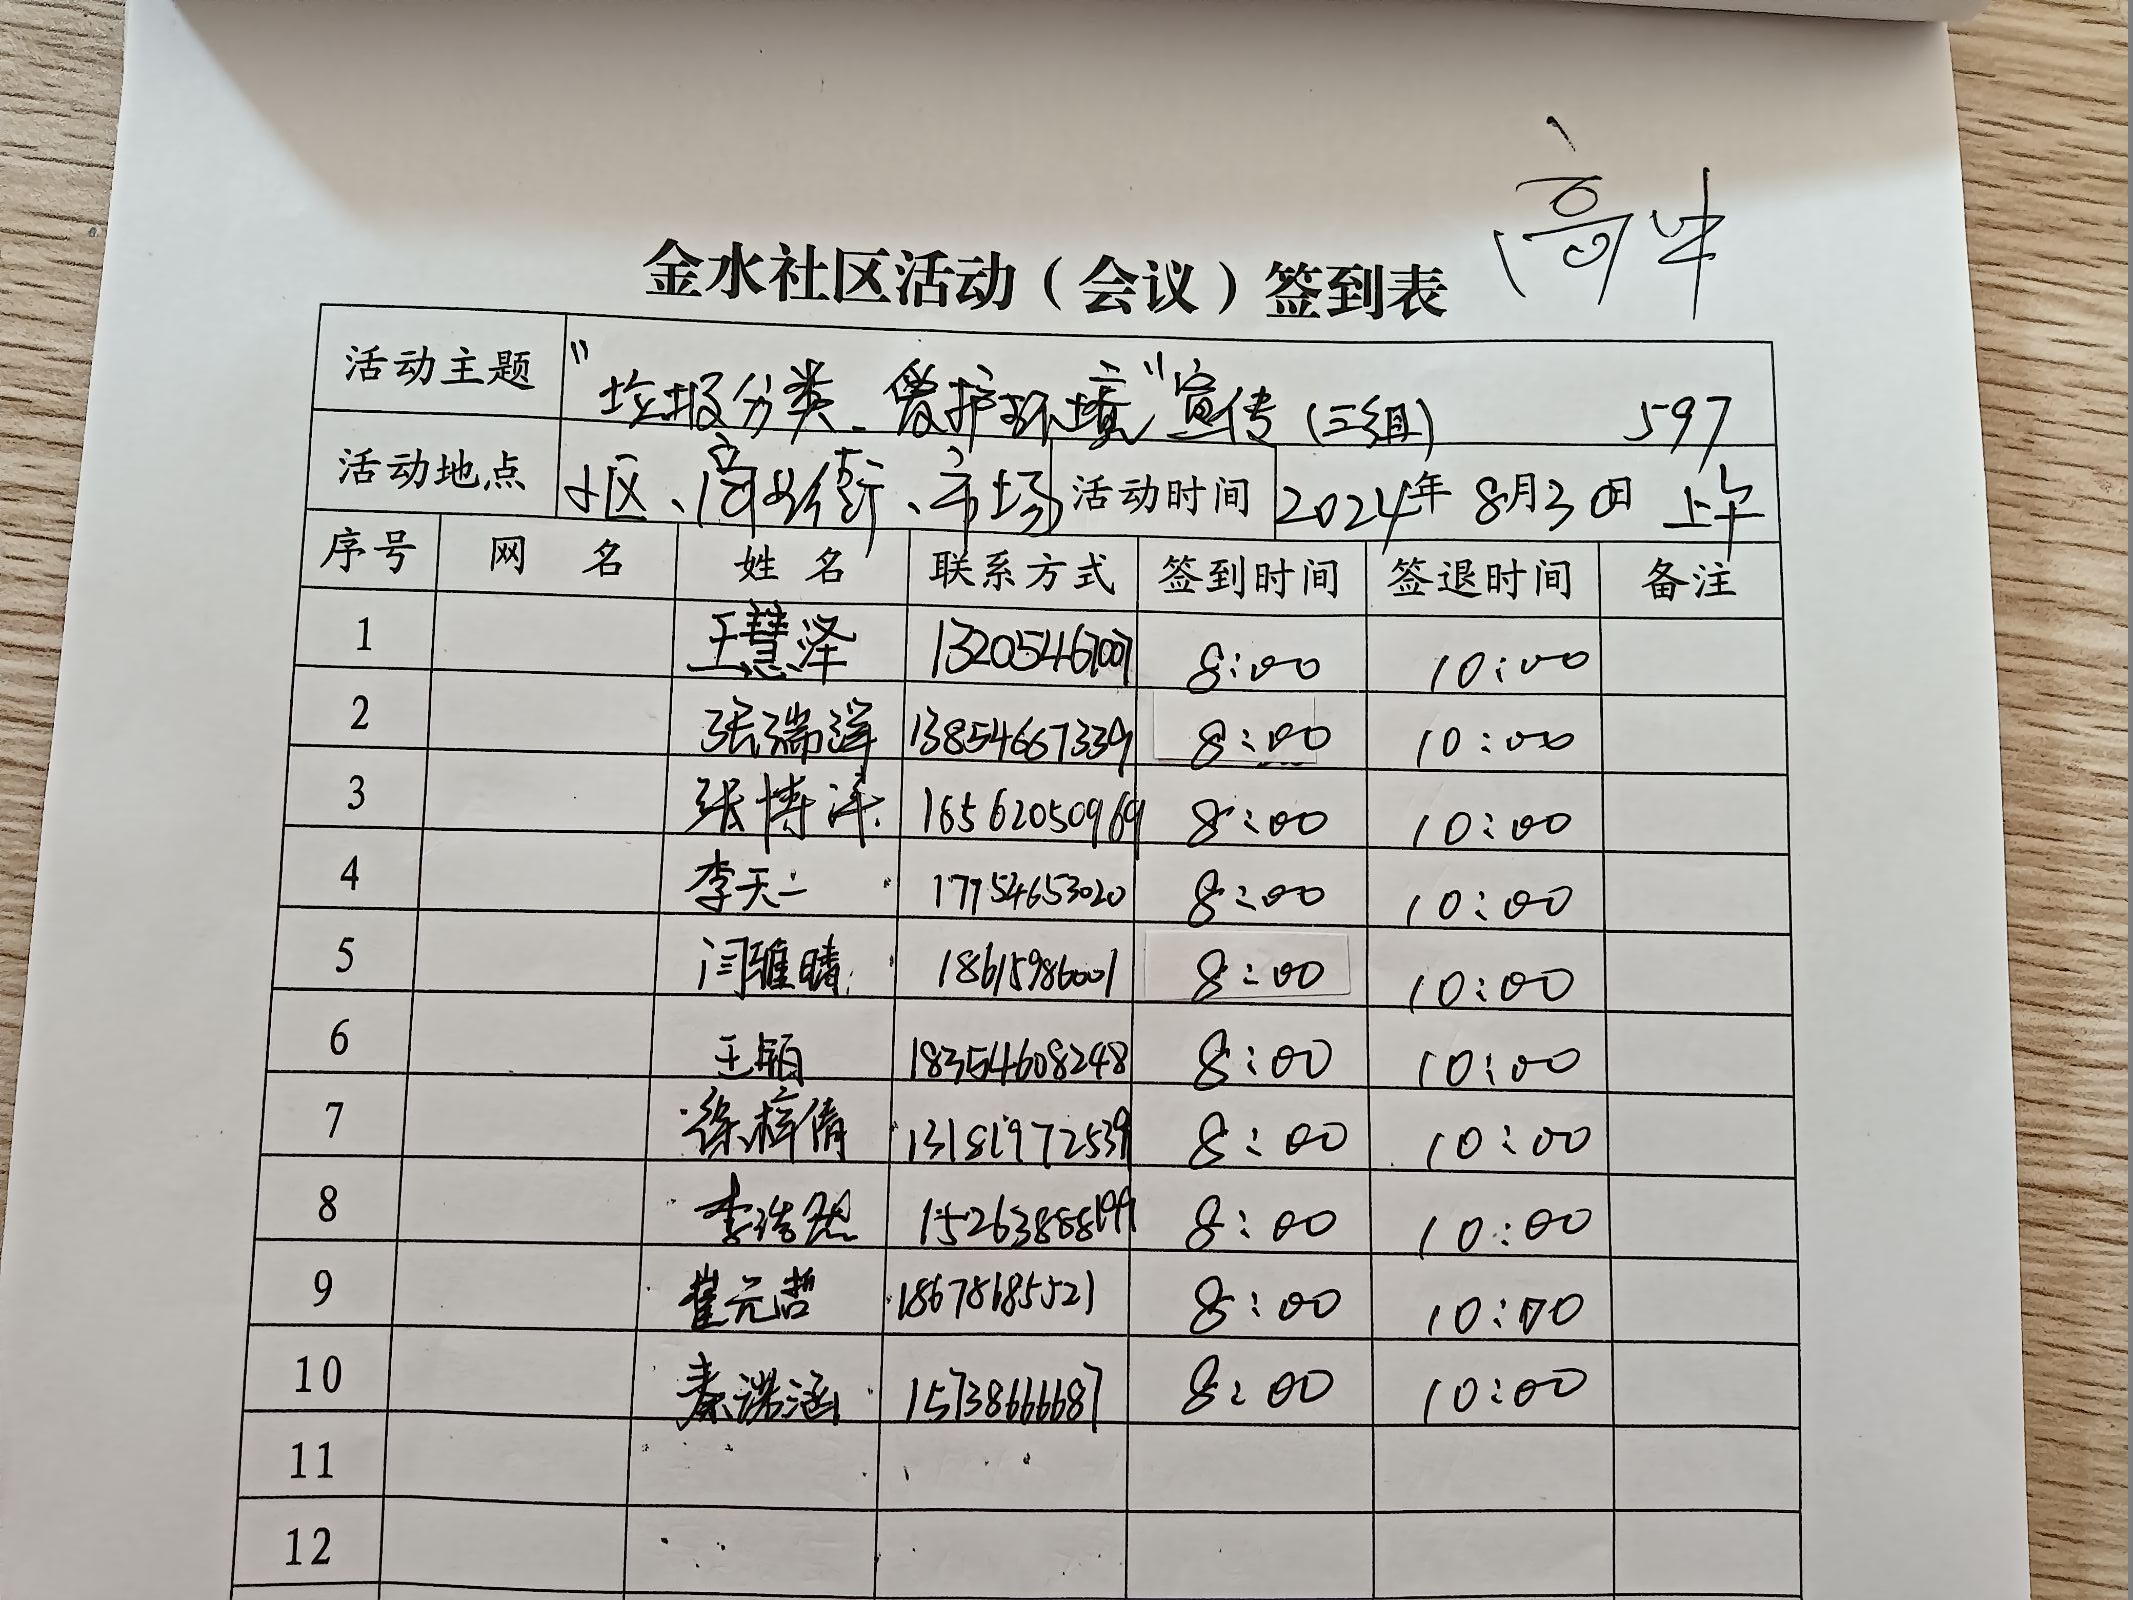 高中
金水社区活动（会议）签到表
活动主题 “垃圾分类、爱护环境”宣传（三组） 597
活动地点 小区、商业街、市场 活动时间 2024年8月30日 上午
序号 网 名 姓 名 联系方式 签到时间 签退时间 备注
1 王慧泽 13205467007 8:00 10:00
2 张瑞 13854667339 8:00 10:00
3 张博洋 16562050969 8:00 10:00
4 李天一 17754653020 8:00 10:00
5 闫雅晴 18615986001 8:00 10:00
6 王颖 18354608248 8:00 10:00
7 徐梓倩 13181972539 8:00 10:00
8 李浩然 15263868199 8:00 10:00
9 崔元哲 18678685521 8:00 10:00
10 秦诺涵 15738666687 8:00 10:00
11
12